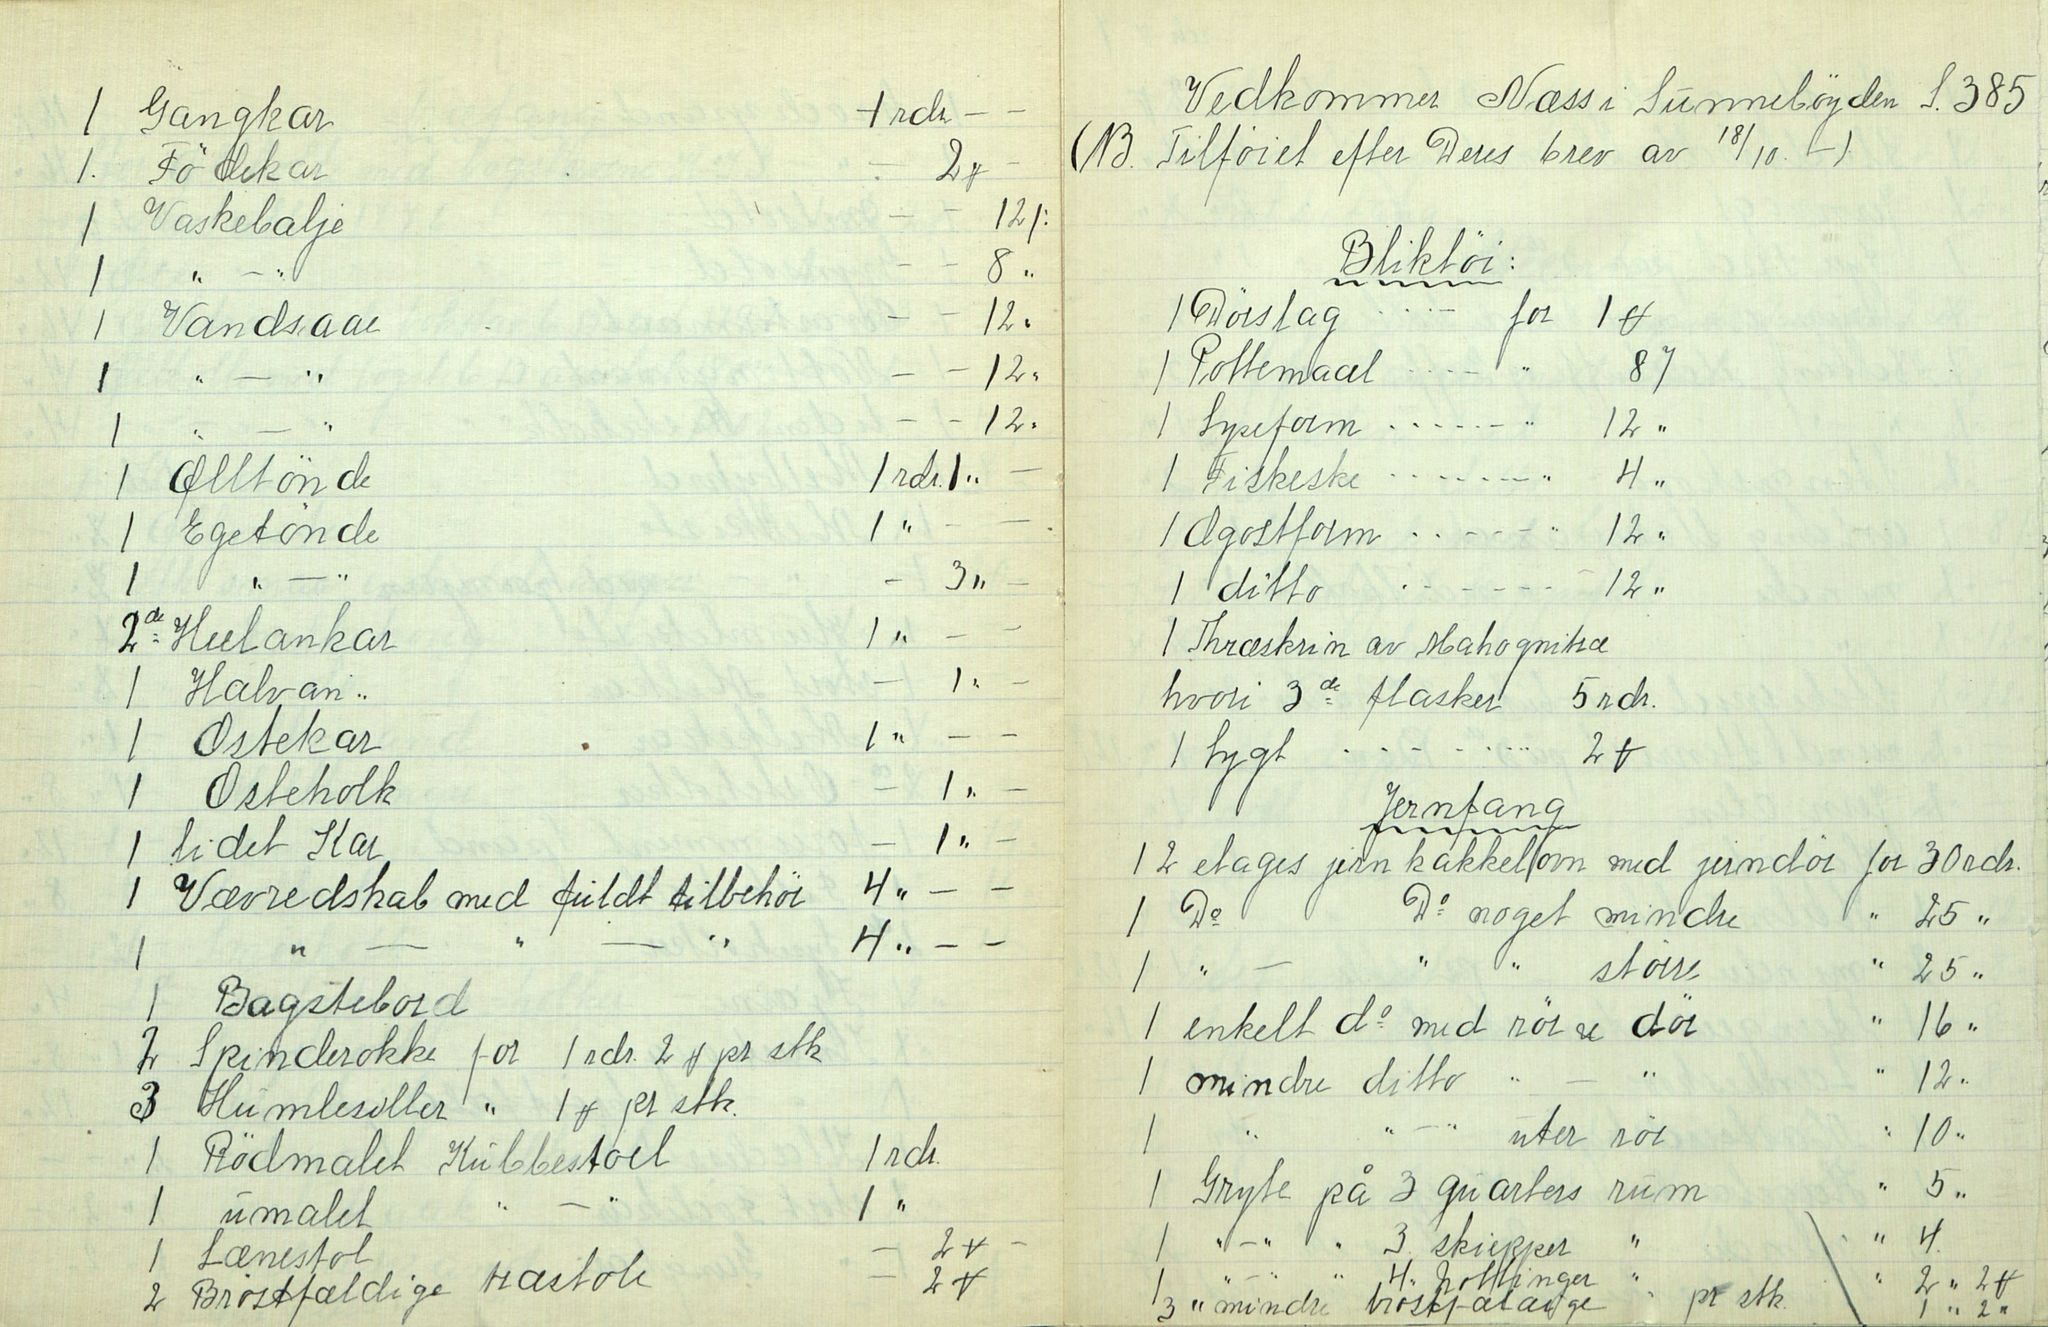 1 Gangkar 1 rdr - -
1. Födekar - 2 ¤ -
1 Vaskebalje - - 12 /:
1 " - " - - 8 "
1 Vandsaae - - 12 "
1 " - " - - 12 "
1 " - " - - 12 "
1 Ølltönde 1 rdr. 1 " -
1 Egetönde 1 " - -
1 " - " - 3 " -
2de Heelankar 1 " - -
1 Halvan " - 1 " -
1 Ostekar 1 " - -
1 Osteholk - 1 " -
1 lidet Kar - 1 " -
1 Vævredskab med fuldt tilbehör 4 " - -
1 " - " - " 4 " - -
1 Bagstebord
2 Spinderokke for 1 rdr. 2 ¤ pr stk
3 Humlesoller " 1 ¤ pr stk.
1 Rödmalet Kubbestoel 1 rdr.
1 umalet " - " 1 "
1 Lænestol - 2 ¤ -
2 Bröstfældige træstole - 2 ¤
Vedkommer Næss i Sunneböyden S. 385
(NB. Tilföiet efter Deres brev av 18/10. -)
Bliktöi:
1 Dörslag .... for 1 ¤
1 Pottemaal .... " 8 /
1 Lyseform ...... " 12 "
1 Fiskeske ....... " 4 "
1 Ogostform ...... " 12 "
1 ditto ....... 12 "
1 Thræskrin av Mahognitræ
hvori 3de flasker 5 rdr.
1 Lygt ....... 2 ¤
Jernfang
1 2 etages jernkakkelovn med jerndör for 30 rdr.
1 Do Do noget mindre " 25 "
1 " - " " större " 25 "
1 enkelt do med rör æ dör " 16 "
1 mindre ditto " - " " 12 "
1 " " - " uten rör " 10 "
1 Gryte på 3 quarters rum " 5 "
1 " - " " 3 skiepper " " 4.
1 " - " " 4 Pottinger " " 2 " 2 ¤
3 " mindre bröstfældige " pr stk. 1 " 2 "